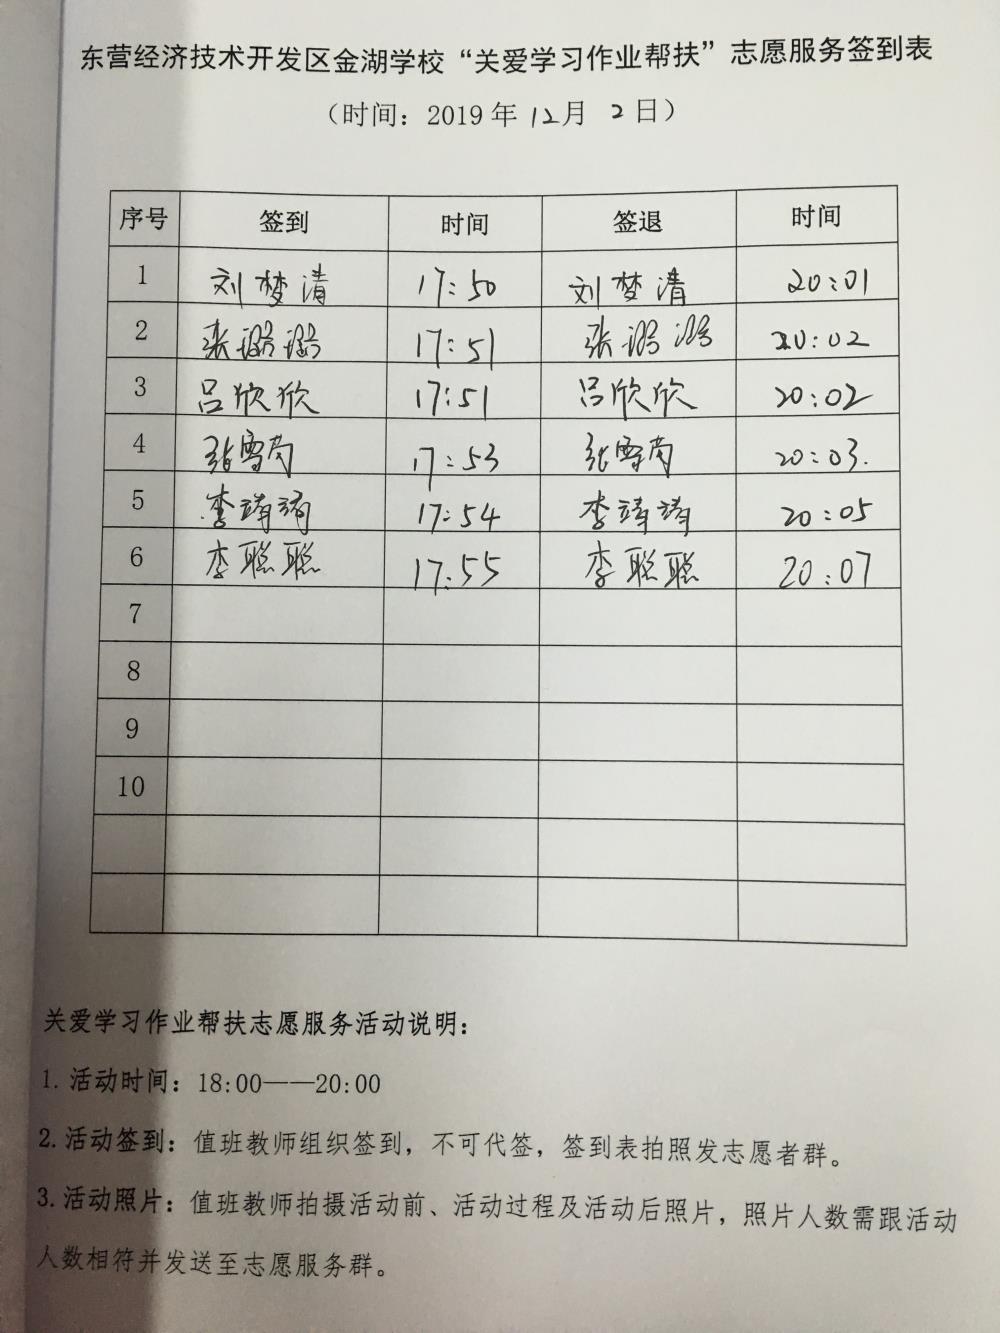 东营经济技术开发区金湖学校“关爱学习作业帮扶”志愿服务签到表
（时间：2019年12月 2日）
序号 签到 时间 签退 时间
1 刘梦清 17:50 刘梦清 20:01
2 张璐璐 17:51 张璐璐 20:02
3 吕欣欣 17:51 吕欣欣 20:02
4 张雪菊 17:53 张雪菊 20:03.
5 李靖靖 17:54 李靖靖 20:05
6 李聪聪 17:55 李聪聪 20:07
7
8
9
10
关爱学习作业帮扶志愿服务活动说明：
1. 活动时间：18:00——20:00
2. 活动签到：值班教师组织签到，不可代签，签到表拍照发志愿者群。
3. 活动照片：值班教师拍摄活动前、活动过程及活动后照片，照片人数需跟活动
人数相符并发送至志愿服务群。